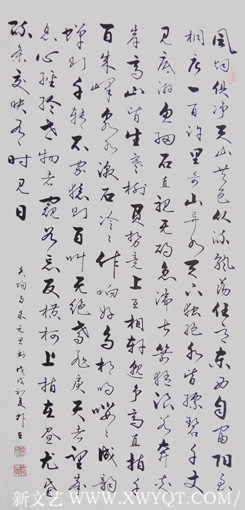 風煙俱淨天山共色從流飄蕩任意東西自富陽至
桐廬一百許里奇山異水天下獨絕水皆縹碧千丈
見底游魚細石直視無礙急湍甚箭猛浪若奔夾
岸高山皆生寒樹負勢競上互相軒邈爭高直指千
百成峰泉水激石泠泠作響好鳥相鳴嚶嚶成韻
蟬則千轉不窮猿則百叫無絕鳶飛戾天者望峰
息心經綸世務者窺谷忘反橫柯上蔽在晝猶昏
疏條交映有時見日
吳均與朱元思書戊戌初夏
新文艺（WWW.XWYQT.COM）